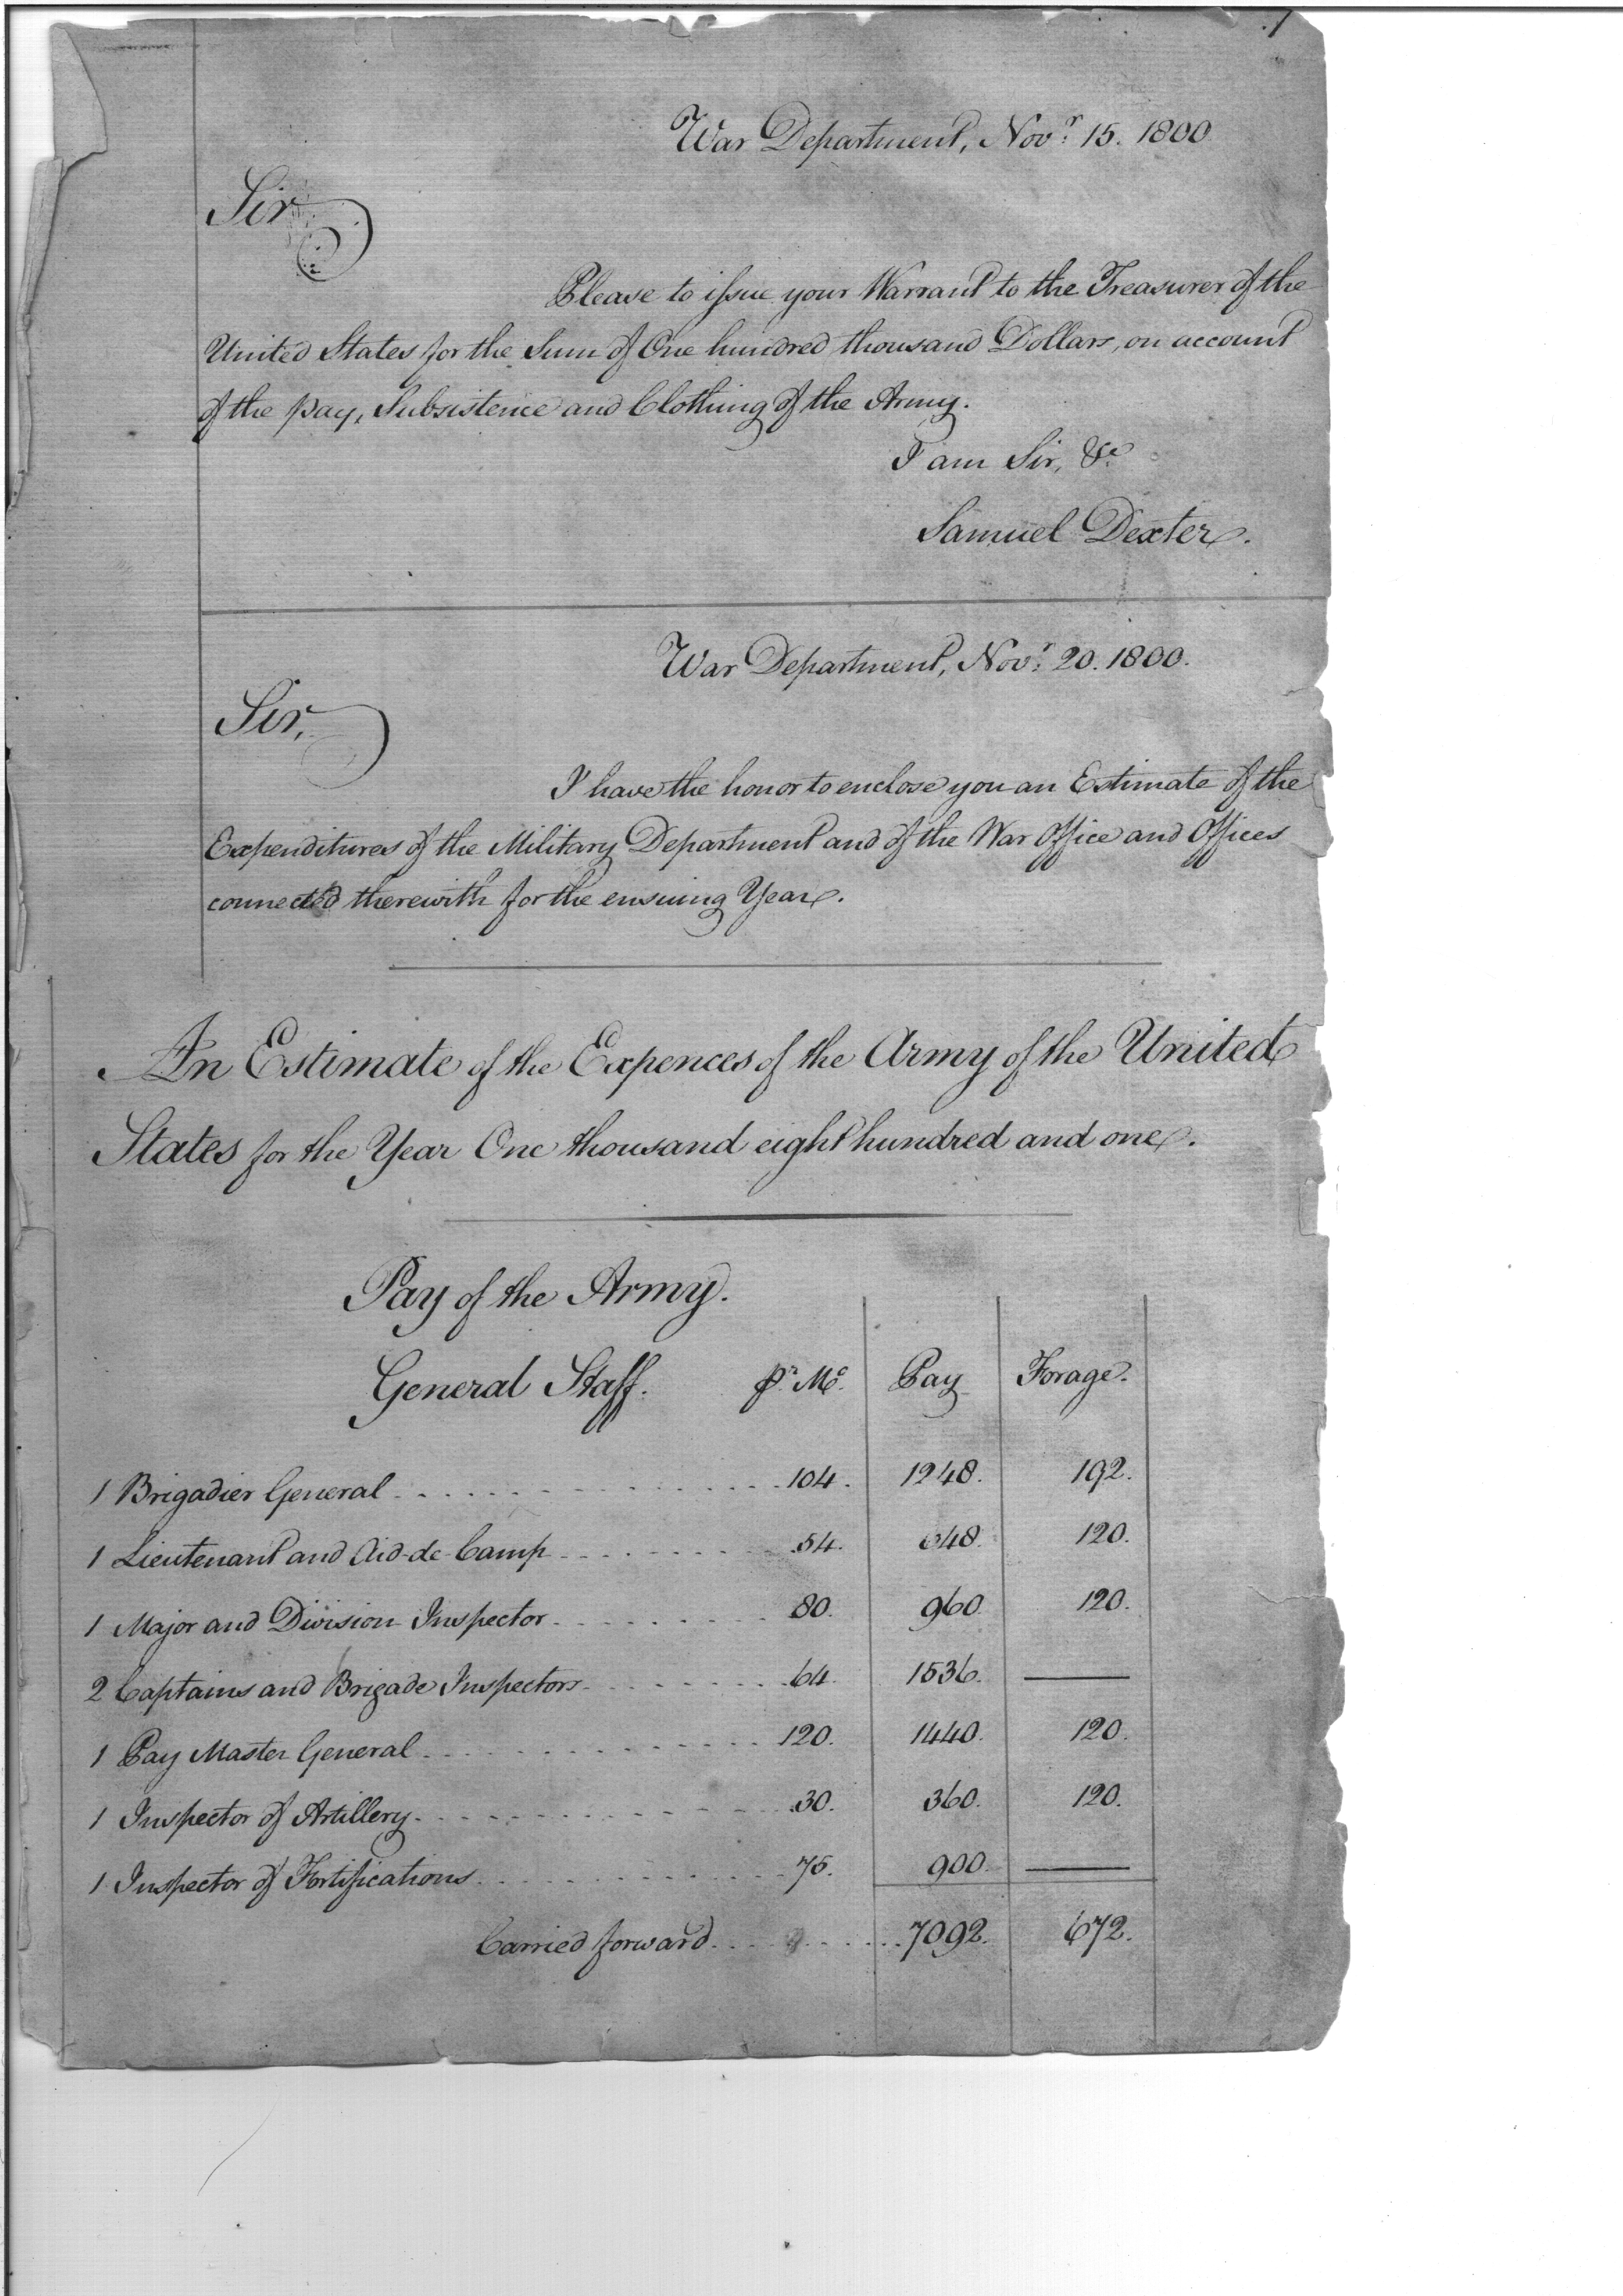 War Department, Novr. 15. 1800
Sir
Please to issue your Warrant to the Treasurer of the
United States for the Sum of One hundred thousand Dollars, on account
of the pay, Subsistence and Clothing of the Army.
I am Sir, &c.
Samuel Dexter.
War Department, Novr. 20. 1800.
Sir,
I have the honor to enclose you an Estimate of the
Expenditures of the Military Department and of the War Office and Offices
connected therewith for the ensuing Year.
An Estimate of the Expences of the Army of the United
States for the Year One thousand eight hundred and one.
Pay of the Army.
General Staff. pr. Mo. Pay Forage.
1 Brigadier General 104. 1248. 192.
1 Lieutenant and Aid-de-Camp 54. 648. 120.
1 Major and Division Inspector 80. 960. 120.
2 Captains and Brigade Inspectors 64. 1536. ——
1 Pay Master General 120. 1440. 120.
1 Inspector of Artillery 30. 360. 120.
1 Inspector of Fortifications 75. 900. ——
Carried forward 7092. 672.